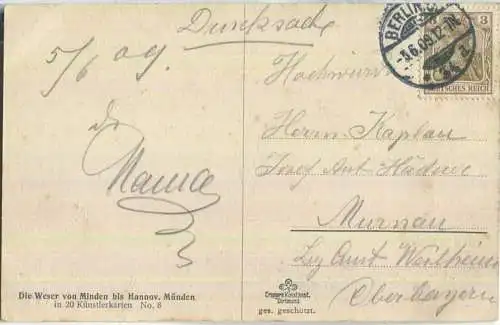 Drucksache
5/6 09.
Mama
Die Weser von Minden bis Hannov. Münden
in 20 Künstlerkarten No. 8
BERLIN
-5.6.09.12-1N.
3
DEUTSCHES REICH
Hochwürden
Herrn Kaplan
Josef Ant.
Murnau
Bez Amt Weilheim
Oberbayern
Dortmund
ges. geschützt.